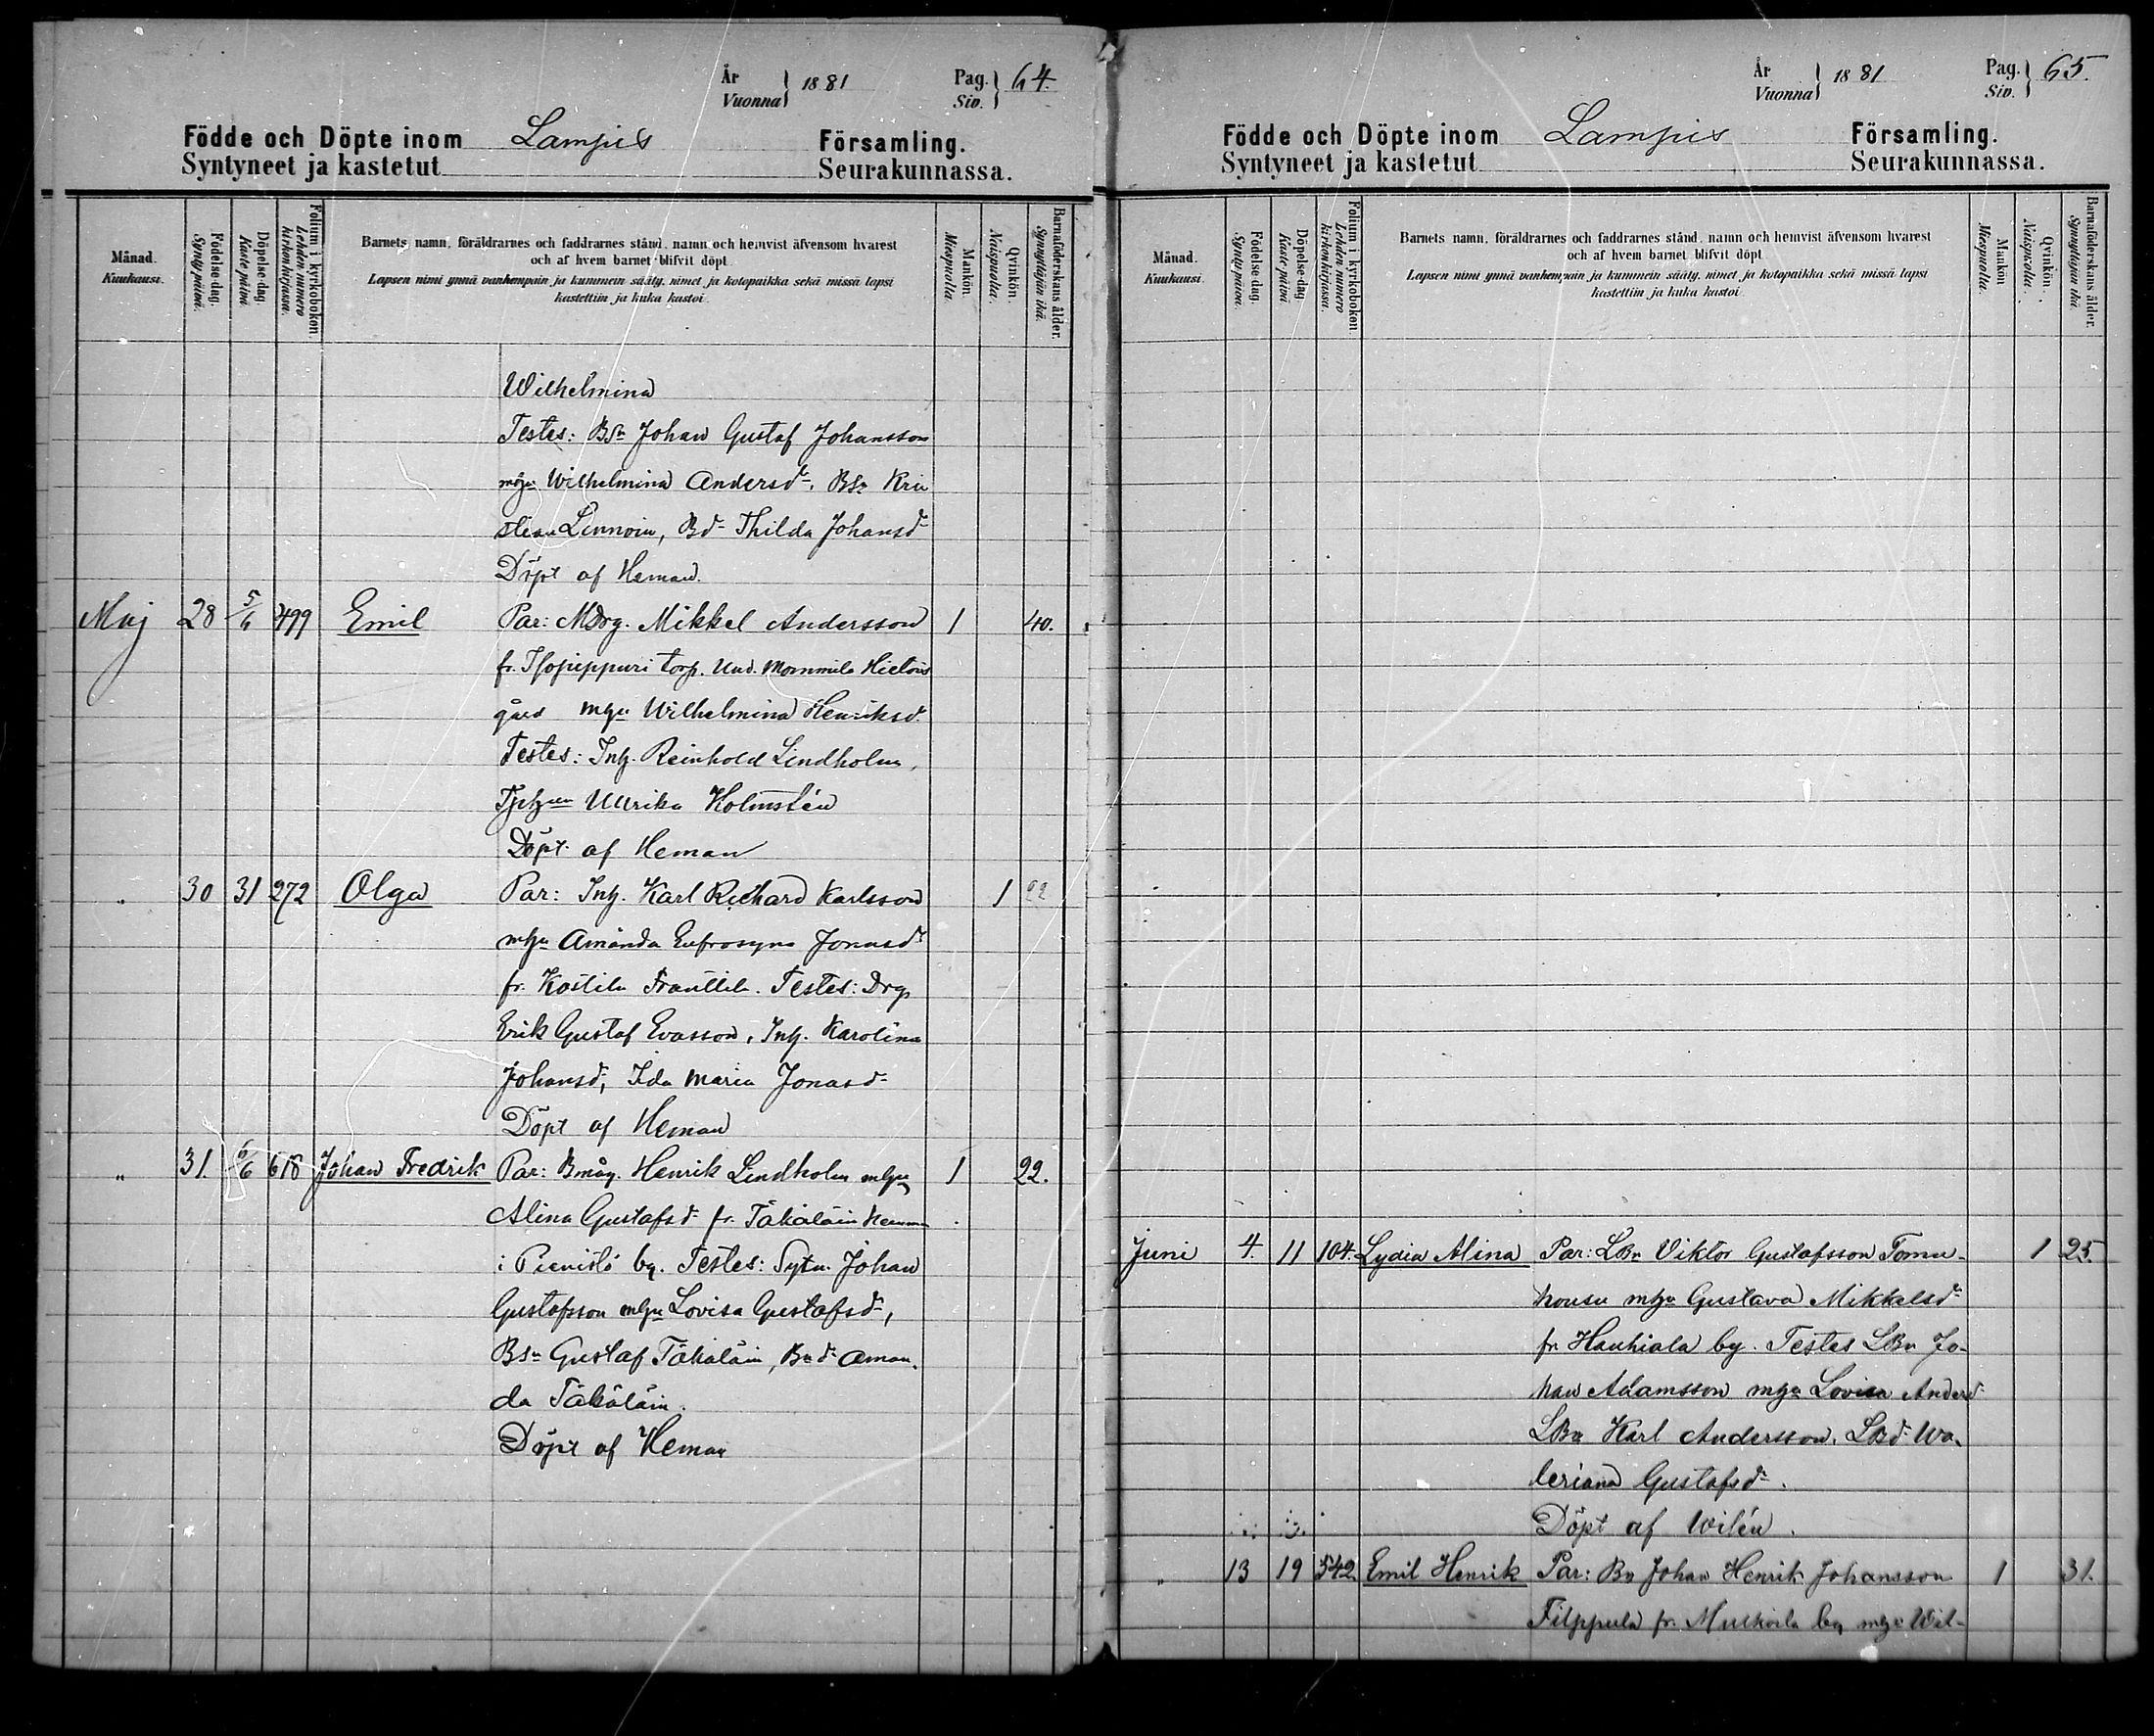 År
Vuonna } 1881 Pag.
Siv. } 64.
Födde och Döpte inom Lampis Församling.
Syntyneet ja kastetut Seurakunnassa.
Månad.
Kuukausi.
Födelse-dag.
Synty päivä.
Döpelse-dag.
Kaste päivä.
Folium i kyrkoboken.
Lehden numero
kirkon kirjassa.
Barnets namn, föräldrarnes och faddrarnes stånd, namn och hemvist äfvensom hvarest
och af hvem barnet blifvit döpt.
Lapsen nimi ynnä vanhempain ja kummein sääty, nimet ja kotopaikka sekä missä lapsi
kastettiin ja kuka kastoi.
Mankön.
Miespuolta.
Qvinkön.
Naispuolta.
Barnaföderskans ålder.
Synnyttäjän ikä.
Wilhelmina
Testes: Bsn Johan Gustaf Johansson
mhu Wilhelmina Andersdr, Bsn Kri
stian Linnoin, Bdr Thilda Johansdr
Döpt af Heman.
Maj 28 5/6 499 Emil Par: MDrg. Mikkel Andersson 1 40.
fr. Isopeippuri torp. und. Mommila Hietois
gård mhu Wilhelmina Henriksdr.
Testes: Inh. Reinhold Lindholm,
Ullrika Holmstén
Döpt af Heman
" 30 31 272 Olga Par: Inh. Karl Richard Karlsson 1 22
mhu Amanda Eufrosyna Jonasdr
fr. Kostila Franttila. Testes: Drg
Erik Gustaf Evasson, Inh. Karolina
Johansdr, Ida Maria Jonasdr
Döpt af Heman
" 31. 6/6 618 Johan Fredrik Par: Bmåg. Henrik Lindholm mhu 1 22.
Alina Gustafsdr fr. Täkäläin hemman
i Pienistö by. Testes: Sytn. Johan
Gustafsson mhu Lovisa Gustafsdr,
Bsn Gustaf Täkäläin, Bndr Aman-
da Täkäläin.
Döpt af Heman
År
Vuonna } 1881 Pag.
Siv. } 65.
Födde och Döpte inom Lampis Församling.
Syntyneet ja kastetut Seurakunnassa.
Månad.
Kuukausi.
Födelse-dag.
Synty päivä.
Döpelse-dag.
Kaste päivä.
Folium i kyrkoboken.
Lehden numero
kirkon kirjassa.
Barnets namn, föräldrarnes och faddrarnes stånd, namn och hemvist äfvensom hvarest
och af hvem barnet blifvit döpt.
Lapsen nimi ynnä vanhempain ja kummein sääty, nimet ja kotopaikka sekä missä lapsi
kastettiin ja kuka kastoi.
Mankön.
Miespuolta.
Qvinkön.
Naispuolta.
Barnaföderskans ålder.
Synnyttäjän ikä.
Juni 4. 11 104. Lydia Alina Par: LBn Viktor Gustafsson Tomu- 1 25.
housu mhu Gustava Mikkelsdr
fr Hauhiala by. Testes LBn Jo-
han Adamsson mhu Lovisa Andersdr
LBn Karl Andersson, LBdr Wa-
leriana Gustafsdr.
Döpt af Wilén.
" 13 19 542. Emil Henrik Par: Bn Johan Henrik Johansson 1 31.
Filppula fr. Mulkoila by mhu Wil-